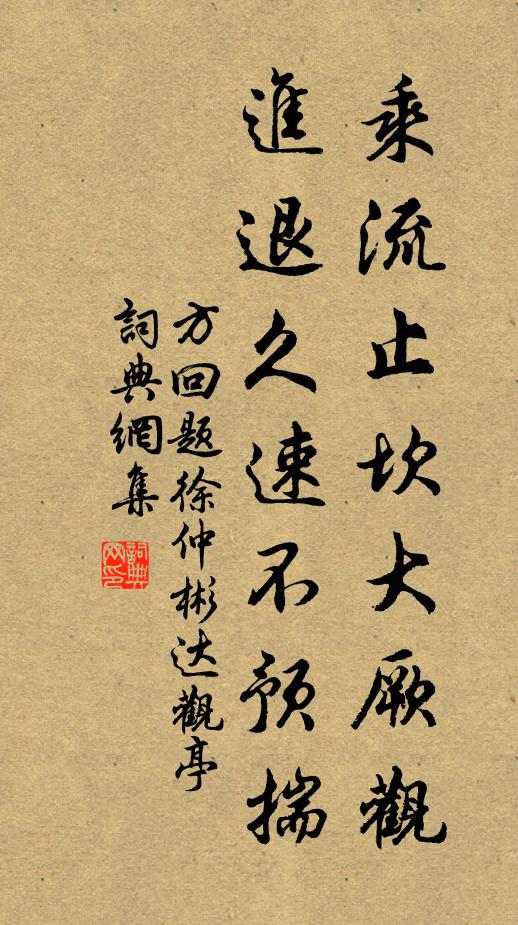 乘流止坎大厥觀
進退久速不預揣
方回题徐仲彬达觀亭
詞典網集
詞典網印